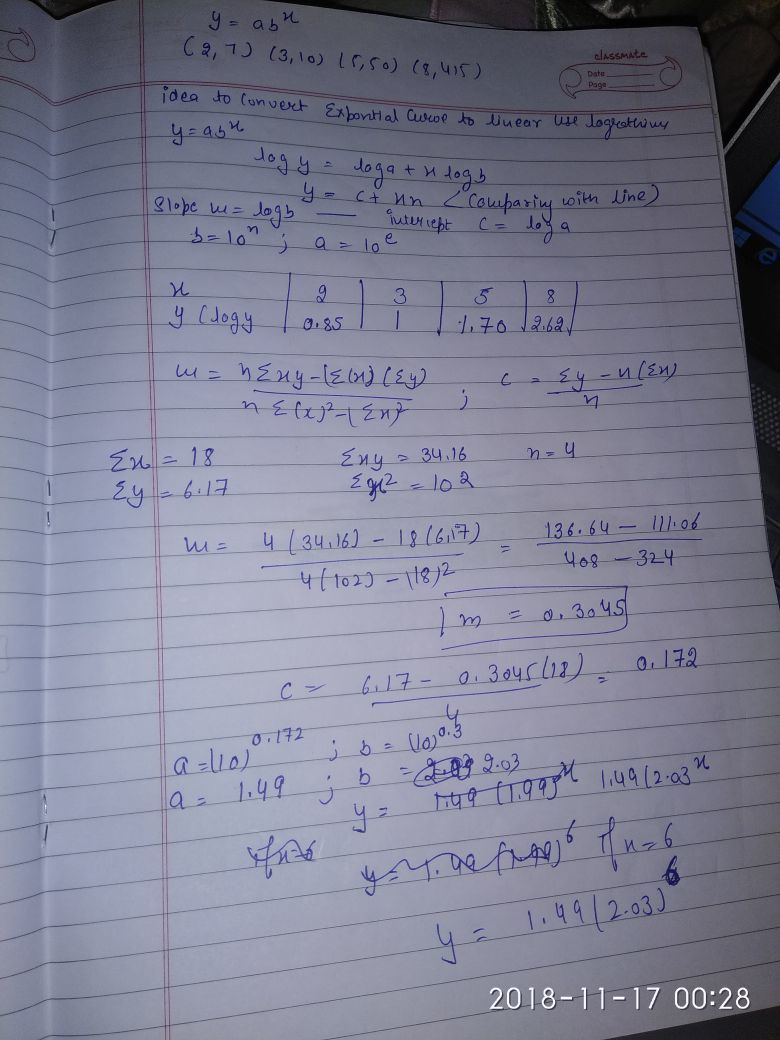 y = ab^x
classmate
Date
Page
(2, 7) (3, 10) (5, 50) (8, 415)
idea to Convert Expontial Curve to linear use logrothims
y = ab^x
log y = log a + x log b
y = c + xn (Comparing with line)
Slope m = log b — intercept C = log a
b = 10^n ; a = 10^c
x | 2 | 3 | 5 | 8 |
y (log y | 0.85 | 1 | 1.70 | 2.62 |
m = nΣxy - (Σ(x) (Σy) / n Σ(x)^2 - (Σx)^2 ; c = Σy - n (Σx) / n
Σx = 18 Σxy = 34.16 n = 4
Σy = 6.17 Σx^2 = 102
m = 4 (34.16) - 18 (6.17) / 4(102) - (18)^2 = 136.64 - 111.06 / 408 - 324
m = 0.3045
C = 6.17 - 0.3045 (18) / 4 = 0.172
a = (10)^0.172 ; b = (10)^0.3
a = 1.49 ; b = 2.03
y = 1.49 (1.99)^x 1.49 (2.03^x
If x = 6 y = 1.49 (1.99)^6 If x = 6
y = 1.49 (2.03)^6
2018-11-17 00:28